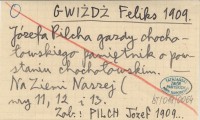 O GWIŻDŻ Feliks 1909.
Józefa Pilcha gazdy chocho-
łowskiego pamiętnik o po-
staniu chochołowskim.
Na Ziemi Naszej (
nry 11, 12, i 13.
Zob.: PILCH Józef 1909...